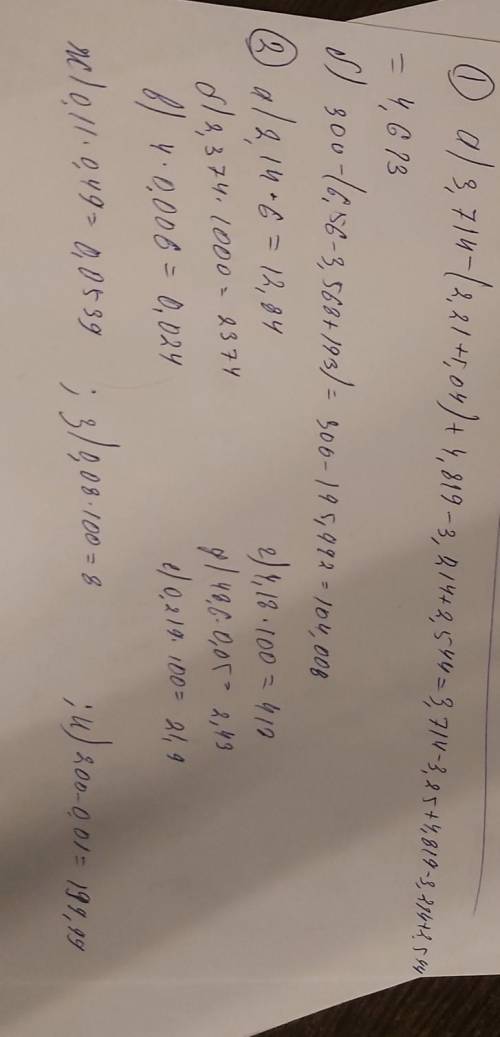 ① а) 3,714-(2,21+1,04)+4,819-3,214+2,544=3,714-3,25+4,819-3,214+2,544
= 4,613
б) 300-(6,56-3,568+193)=300-195,992=104,008
② а) 2,14·6=12,84
г) 4,18·100=418
б) 2,374·1000=2374
д) 48,6·0,05=2,43
в) 4·0,006=0,024
е) 0,219·100=21,9
ж) 0,11·0,49=0,0539 ; з) 0,08·100=8 ; и) 200-0,01=199,99